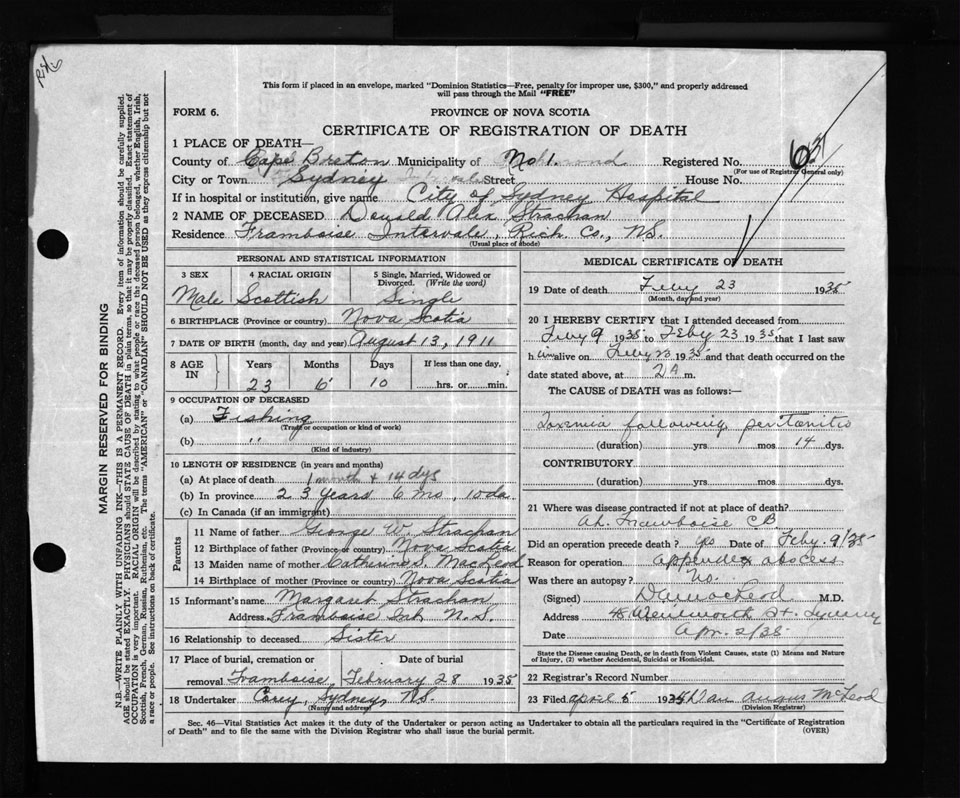 This form if placed in an envelope, marked "Dominion Statistics—Free, penalty for improper use, $300," and properly addressed
will pass through the Mail "FREE"
FORM 6. PROVINCE OF NOVA SCOTIA
CERTIFICATE OF REGISTRATION OF DEATH
1 PLACE OF DEATH—
County of Cape Breton Municipality of No 1. Registered No. 63
(For use of Registrar General only)
City or Town Sydney Street House No.
If in hospital or institution, give name City of Sydney Hospital
2 NAME OF DECEASED Donald Alex Strachan
Residence Framboise Intervale, Rich. Co., N.S.
(Usual place of abode)
PERSONAL AND STATISTICAL INFORMATION
3 SEX 4 RACIAL ORIGIN 5 Single, Married, Widowed or Divorced. (Write the word)
Male Scottish Single
6 BIRTHPLACE (Province or country) Nova Scotia
7 DATE OF BIRTH (month, day and year) August 13, 1911
8 AGE IN Years Months Days If less than one day,
23 6 10 hrs. or min.
9 OCCUPATION OF DECEASED
(a) Fishing
(Trade or occupation or kind of work)
(b) "
(Kind of industry)
10 LENGTH OF RESIDENCE (in years and months)
(a) At place of death 1 month + 14 dys
(b) In province 23 years 6 mo, 10 da.
(c) In Canada (if an immigrant)
Parents
11 Name of father George W. Strachan
12 Birthplace of father (Province or country) Nova Scotia
13 Maiden name of mother Catherine S. MacLeod
14 Birthplace of mother (Province or country) Nova Scotia
15 Informant's name Margaret Strachan
Address Framboise Int. N.S.
16 Relationship to deceased Sister
17 Place of burial, cremation or removal Date of burial
Framboise, February 28 1935
18 Undertaker Sydney, N.S.
(Name and address)
MEDICAL CERTIFICATE OF DEATH
19 Date of death Feby 23 1935
(Month, day and year)
20 I HEREBY CERTIFY that I attended deceased from
Feby 9 1935 to Feby 23 1935 that I last saw
him alive on Feby 23 1935 and that death occurred on the
date stated above, at 2 A m.
The CAUSE of DEATH was as follows:
Toxemia following peritonitis
(duration) yrs mos 14 dys.
CONTRIBUTORY
(duration) yrs. mos. dys.
21 Where was disease contracted if not at place of death?
At Framboise C B
Did an operation precede death? yes Date of Feby. 9/35
Reason for operation appendix abscess
Was there an autopsy? No.
(Signed) M.D.
Address 48 Wentworth St. Sydney
Date Apr. 2/35
State the Disease causing Death, or in death from Violent Causes, state (1) Means and Nature
of Injury, (2) whether Accidental, Suicidal or Homicidal.
22 Registrar's Number
23 Filed April 5 193 Dan Angus McLeod
(Division Registrar)
Sec. 46—Vital Statistics Act makes it the duty of the Undertaker or person acting as Undertaker to obtain all the particulars required in the "Certificate of Registration
of Death" and to file the same with the Division Registrar who shall issue the burial permit. (OVER)
MARGIN RESERVED FOR BINDING
N.B.—WRITE PLAINLY WITH UNFADING INK—THIS IS A PERMANENT RECORD. Every item of information should be carefully supplied.
AGE should be stated EXACTLY. PHYSICIANS should STATE CAUSE OF DEATH in plain terms, so that it may be properly classified. Exact statement of
OCCUPATION is very important. RACIAL ORIGIN will be described by stating to what people or race the deceased person belonged, whether English, Irish,
Scottish, French, German, Russian, Ruthenian, etc. The terms "AMERICAN" or "CANADIAN" SHOULD NOT BE USED as they express citizenship but not
a race or people. See instructions on back of certificate.